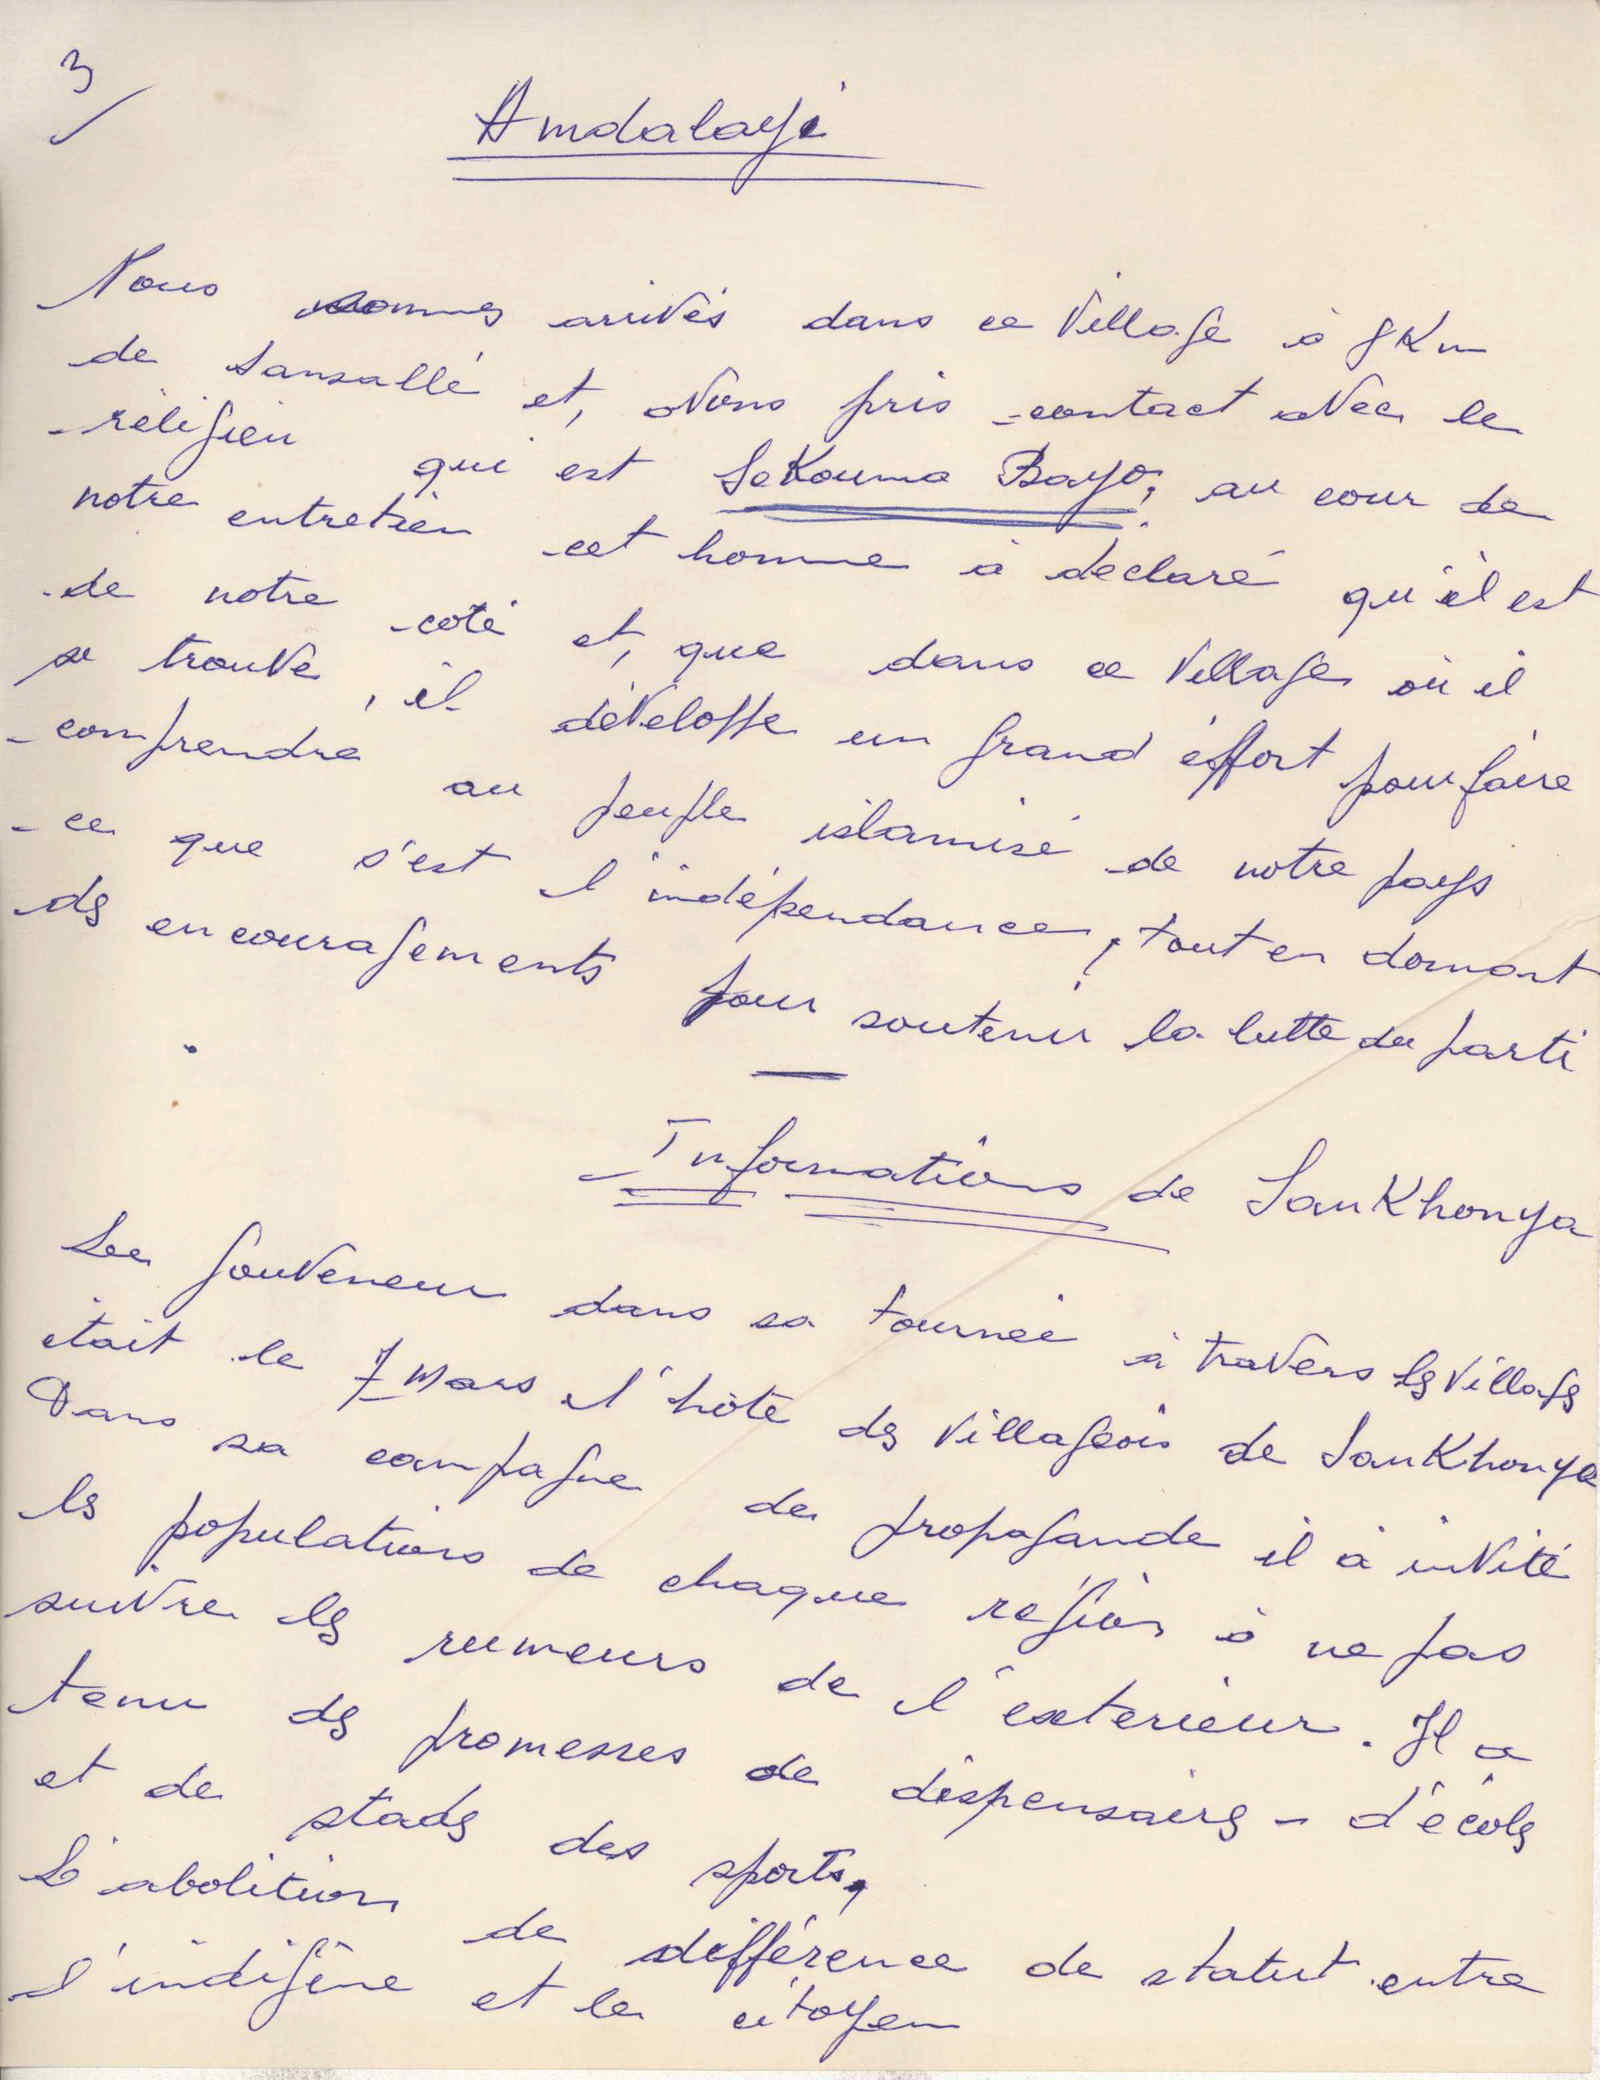 3/
Amdalayi
Nous sommes arrivés dans ce village à 8 Km
de Sansallé et, avons pris contact avec le
réligieu qui est Sekouma Bayo, au cour de
notre entretien cet homme à déclaré qu'il est
de notre coté et, que dans ce village où il
se trouve, il développe un grand éffort pour faire
comprendre au peuple islamisé de notre pays
ce que s'est l'indépendance, tout en donnant
des encouragements pour soutenir la lutte du parti
Informations de SanKhonya
Le gouveneur dans sa tournée à travers les villages
était le 7 mars l'hôte des villageois de SanKhonya
Dans sa campagne de propagande il à invité
les populations de chaque région à ne pas
suivre les rumeurs de l'exterieur. Il a
tenu des promesses de dispensaires - d'écoles
et de stades des sports,
L'abolition de différence de statut entre
l'indigène et le citoyen